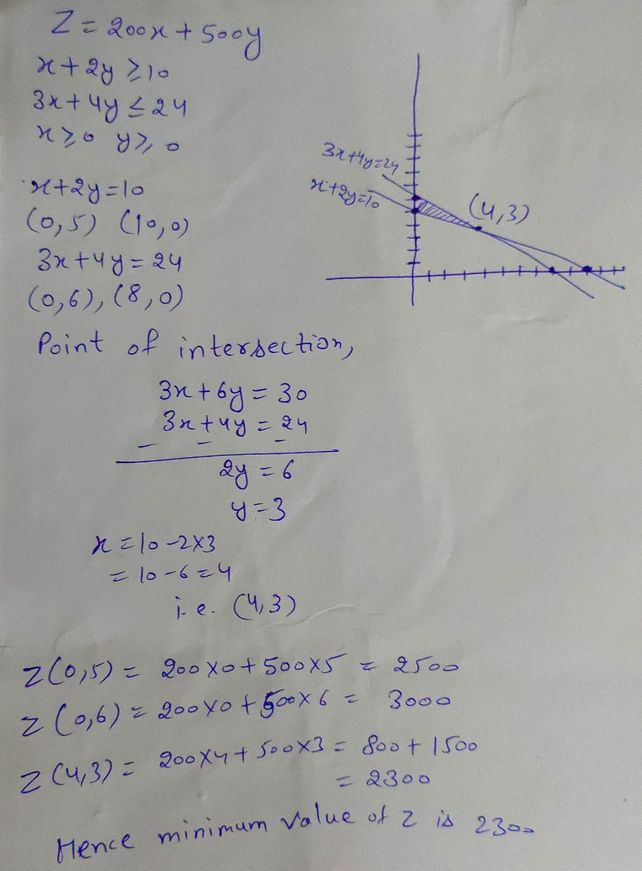 Z = 200x + 500y
x + 2y ≥ 10
3x + 4y ≤ 24
x ≥ 0 y ≥ 0
x + 2y = 10
(0,5) (10,0)
3x + 4y = 24
(0,6), (8,0)
3x+4y=24
x+2y=10
(4,3)
Point of intersection,
3x + 6y = 30
3x + 4y = 24
- - -
2y = 6
y = 3
x = 10 - 2×3
= 10 - 6 = 4
i.e. (4,3)
Z(0,5) = 200×0 + 500×5 = 2500
Z (0,6) = 200×0 + 500×6 = 3000
Z (4,3) = 200×4 + 500×3 = 800 + 1500
= 2300
Hence minimum value of z is 2300